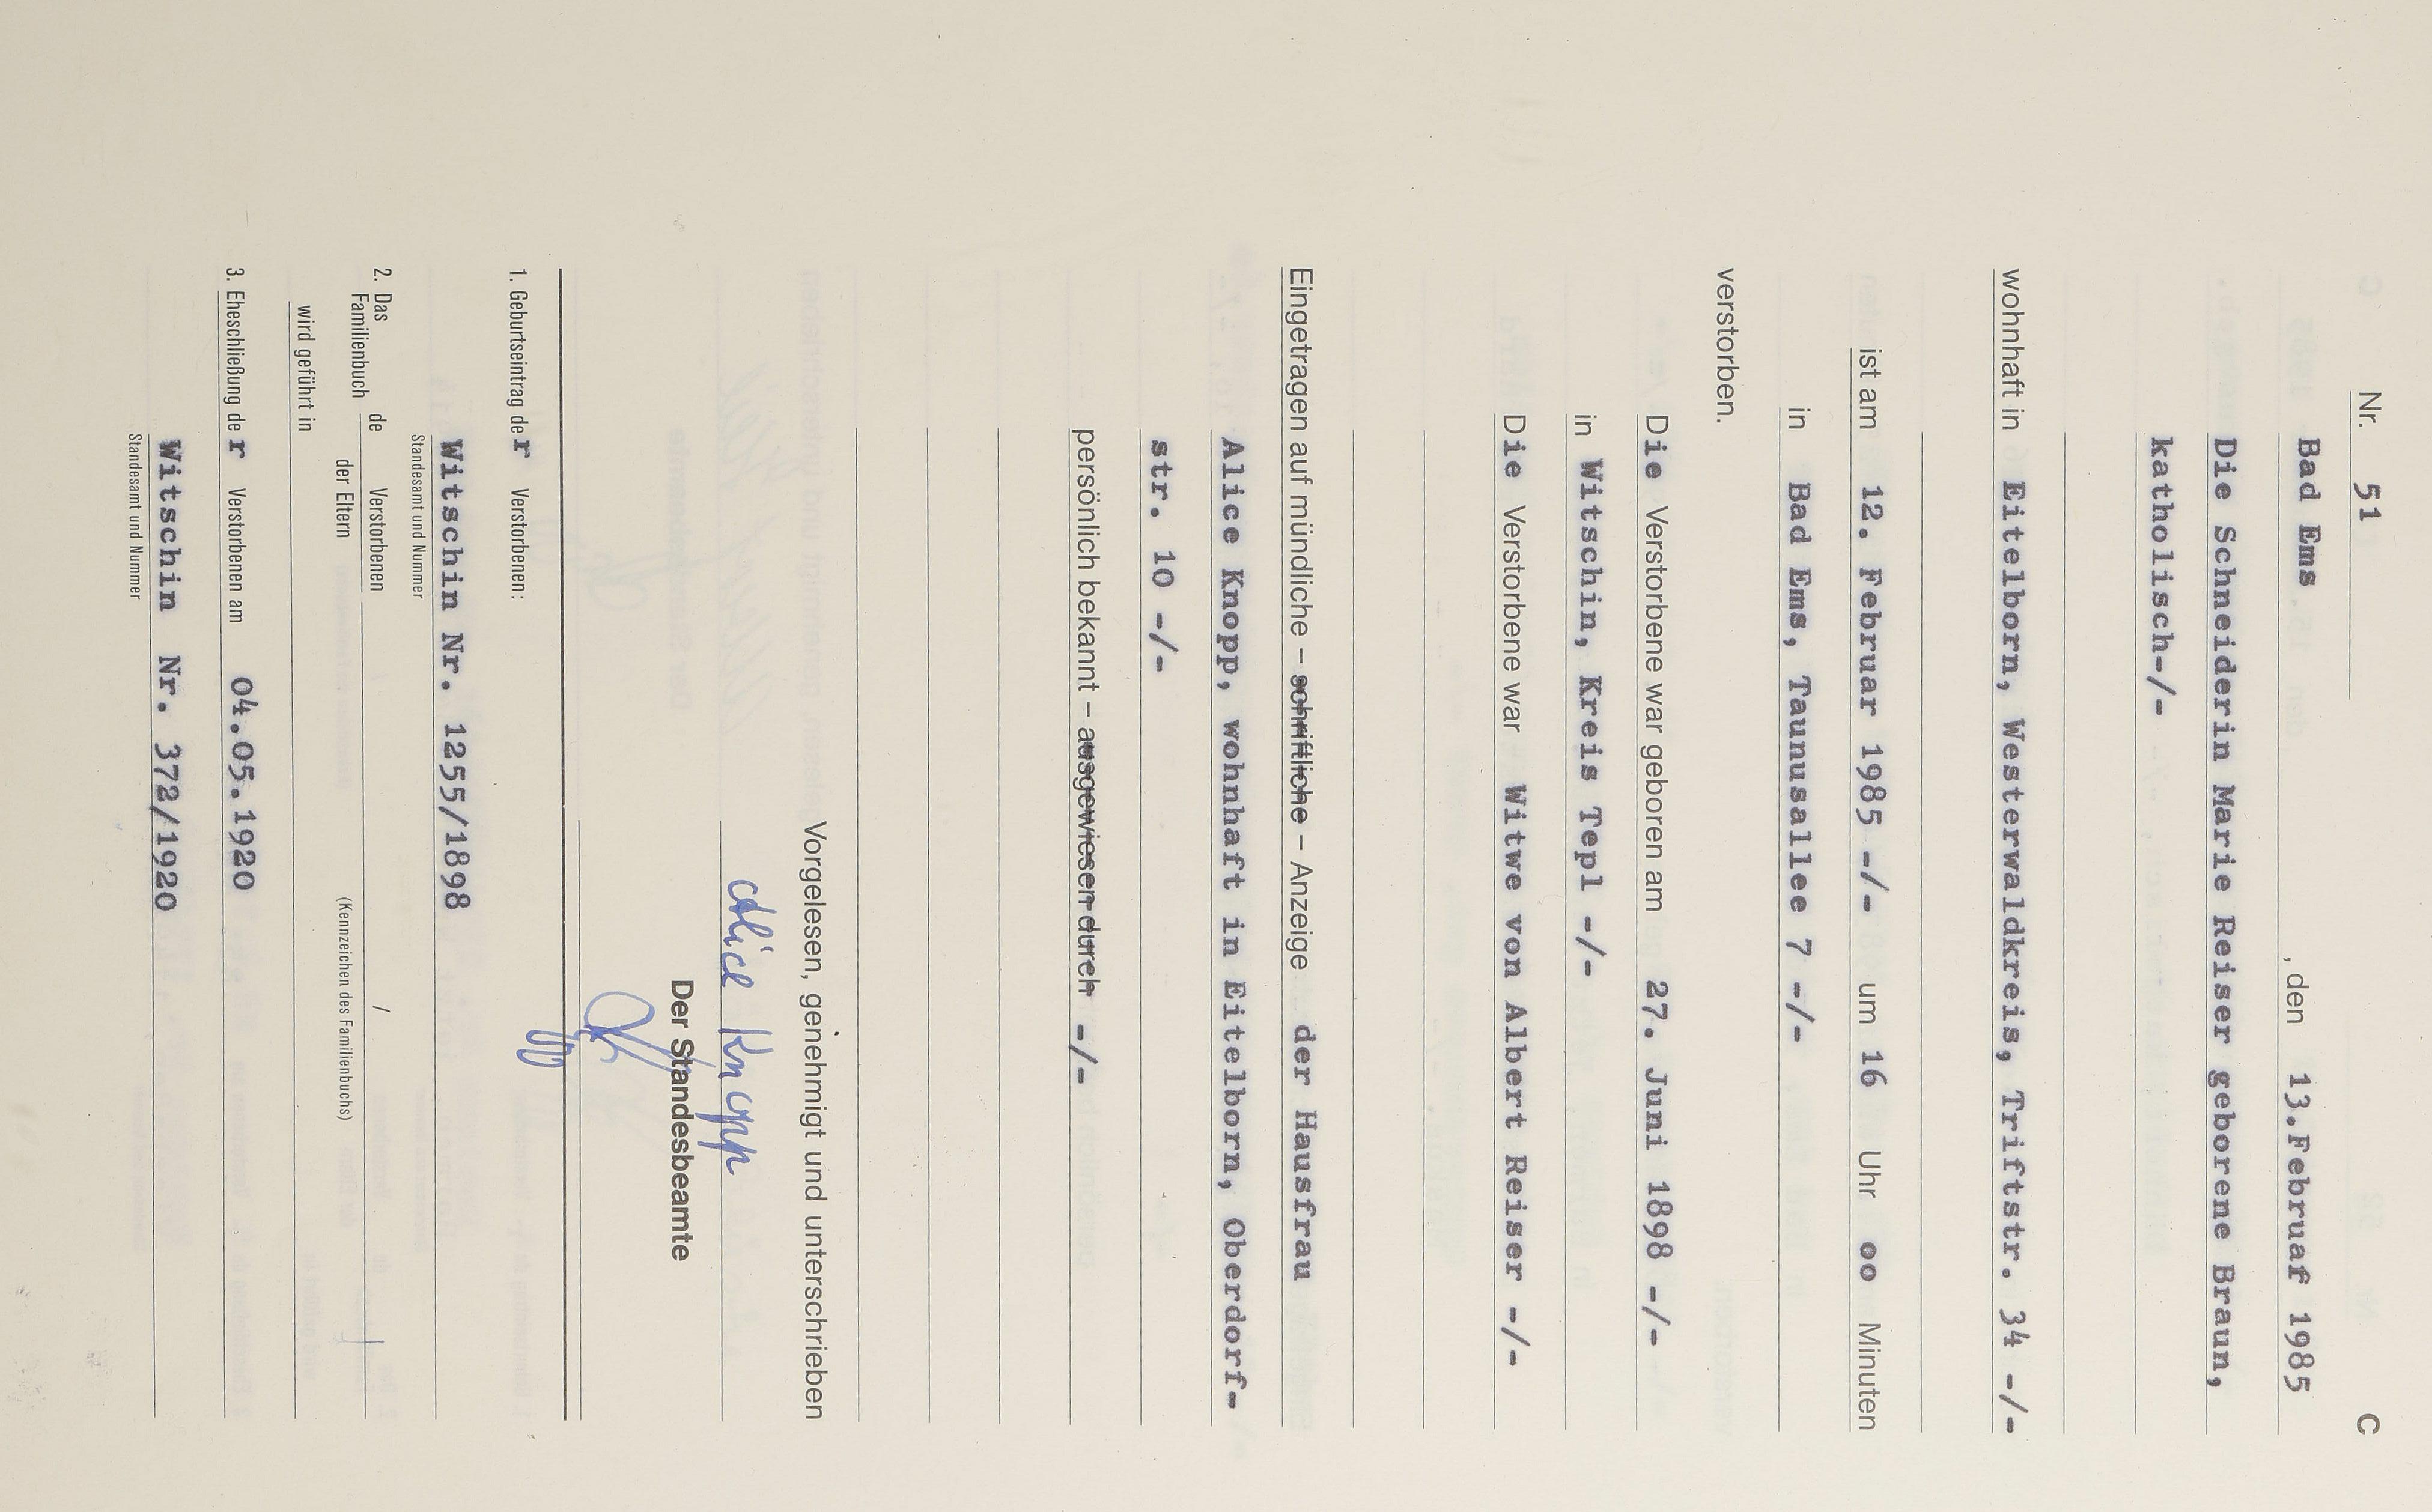 C
Nr. 51
Bad Ems , den 13.Februaf 1985
Die Schneiderin Marie Reiser geborene Braun,
katholisch-/-
wohnhaft in Eitelborn, Westerwaldkreis, Triftstr. 34 -/-
ist am 12. Februar 1985 -/- um 16 Uhr oo Minuten
in Bad Ems, Taunusallee 7 -/-
verstorben.
Die Verstorbene war geboren am 27. Juni 1898 -/-
in Witschin, Kreis Tepl -/-
Die Verstorbene war Witwe von Albert Reiser -/-
Eingetragen auf mündliche – schriftliche – Anzeige der Hausfrau
Alice Knopp, wohnhaft in Eitelborn, Oberdorf-
str. 10 -/-
persönlich bekannt – ausgewiesen durch -/-
Vorgelesen, genehmigt und unterschrieben
Alice Knopp
Der Standesbeamte
1. Geburtseintrag der Verstorbenen:
Witschin Nr. 1255/1898
Standesamt und Nummer
2. Das Familienbuch de Verstorbenen /
der Eltern (Kennzeichen des Familienbuchs)
wird geführt in
3. Eheschließung der Verstorbenen am 04.05.1920
Witschin Nr. 372/1920
Standesamt und Nummer